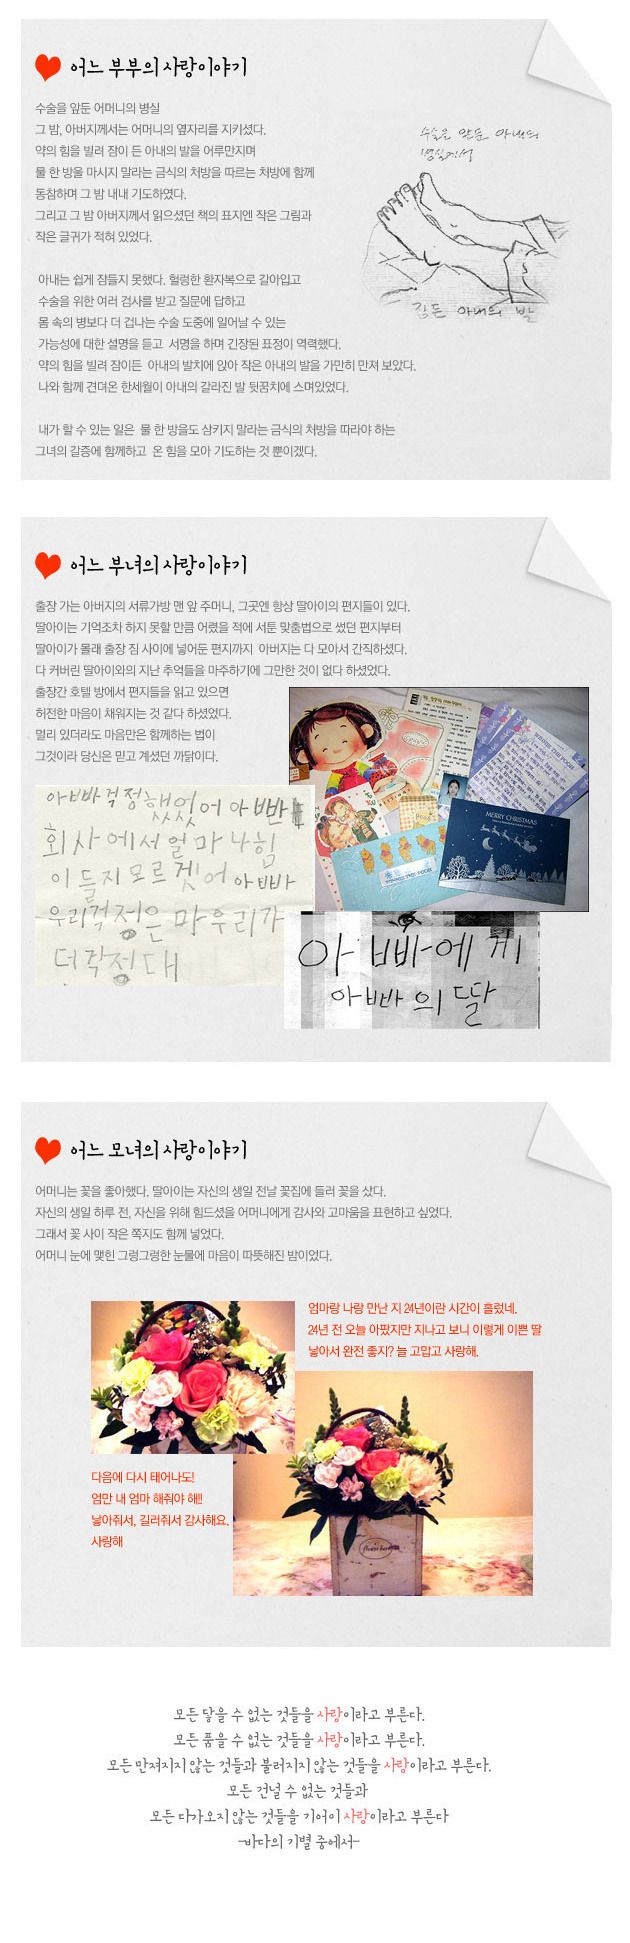 어느 부부의 사랑이야기
수술을 앞둔 어머니의 병실
그 밤, 아버지께서는 어머니의 옆자리를 지키셨다.
약의 힘을 빌려 잠이 든 아내의 발을 어루만지며
물 한 방울 마시지 말라는 금식의 처방을 따르는 처방에 함께
동참하며 그 밤 내내 기도하였다.
그리고 그 밤 아버지께서 읽으셨던 책의 표지엔 작은 그림과
작은 글귀가 적혀 있었다.
수술을 앞둔 아내의
병실에서
잠든 아내의 발
아내는 쉽게 잠들지 못했다. 헐렁한 환자복으로 갈아입고
수술을 위한 여러 검사를 받고 질문에 답하고
몸 속의 병보다 더 겁나는 수술 도중에 일어날 수 있는
가능성에 대한 설명을 듣고 서명을 하며 긴장된 표정이 역력했다.
약의 힘을 빌려 잠이든 아내의 발치에 앉아 작은 아내의 발을 가만히 만져 보았다.
나와 함께 견뎌온 한세월이 아내의 갈라진 발 뒷꿈치에 스며있었다.
내가 할 수 있는 일은 물 한 방울도 삼키지 말라는 금식의 처방을 따라야 하는
그녀의 갈증에 함께하고 온 힘을 모아 기도하는 것 뿐이겠다.
어느 부녀의 사랑이야기
출장 가는 아버지의 서류가방 맨 앞 주머니, 그곳엔 항상 딸아이의 편지들이 있다.
딸아이는 기억조차 하지 못할 만큼 어렸을 적에 서툰 맞춤법으로 썼던 편지부터
딸아이가 몰래 출장 짐 사이에 넣어둔 편지까지 아버지는 다 모아서 간직하셨다.
다 커버린 딸아이와의 지난 추억들을 마주하기에 그만한 것이 없다 하셨었다.
출장간 호텔 방에서 편지들을 읽고 있으면
허전한 마음이 채워지는 것 같다 하셨었다.
멀리 있더라도 마음만은 함께하는 법이
그것이라 당신은 믿고 계셨던 까닭이다.
MERRY CHRISTMAS
아빠 걱정했었어 아빤
회사에서 얼마나 힘
이 들지 모르겠어 아빠
우리걱정은 마 우리가
더 걱정대
아빠에게
아빠의 딸
어느 모녀의 사랑이야기
어머니는 꽃을 좋아했다. 딸아이는 자신의 생일 전날 꽃집에 들러 꽃을 샀다.
자신의 생일 하루 전, 자신을 위해 힘드셨을 어머니에게 감사와 고마움을 표현하고 싶었다.
그래서 꽃 사이 작은 쪽지도 함께 넣었다.
어머니 눈에 맺힌 그렁그렁한 눈물에 마음이 따뜻해진 밤이었다.
엄마랑 나랑 만난 지 24년이란 시간이 흘렀네.
24년 전 오늘 아팠지만 지나고 보니 이렇게 이쁜 딸
낳아서 완전 좋지? 늘 고맙고 사랑해.
다음에 다시 태어나도!
엄만 내 엄마 해줘야 해!!
낳아줘서, 길러줘서 감사해요.
사랑해
모든 닿을 수 없는 것들을 사랑이라고 부른다.
모든 품을 수 없는 것들을 사랑이라고 부른다.
모든 만져지지 않는 것들과 불러지지 않는 것들을 사랑이라고 부른다.
모든 건널 수 없는 것들과
모든 다가오지 않는 것들을 기어이 사랑이라고 부른다
-바다의 기별 중에서-